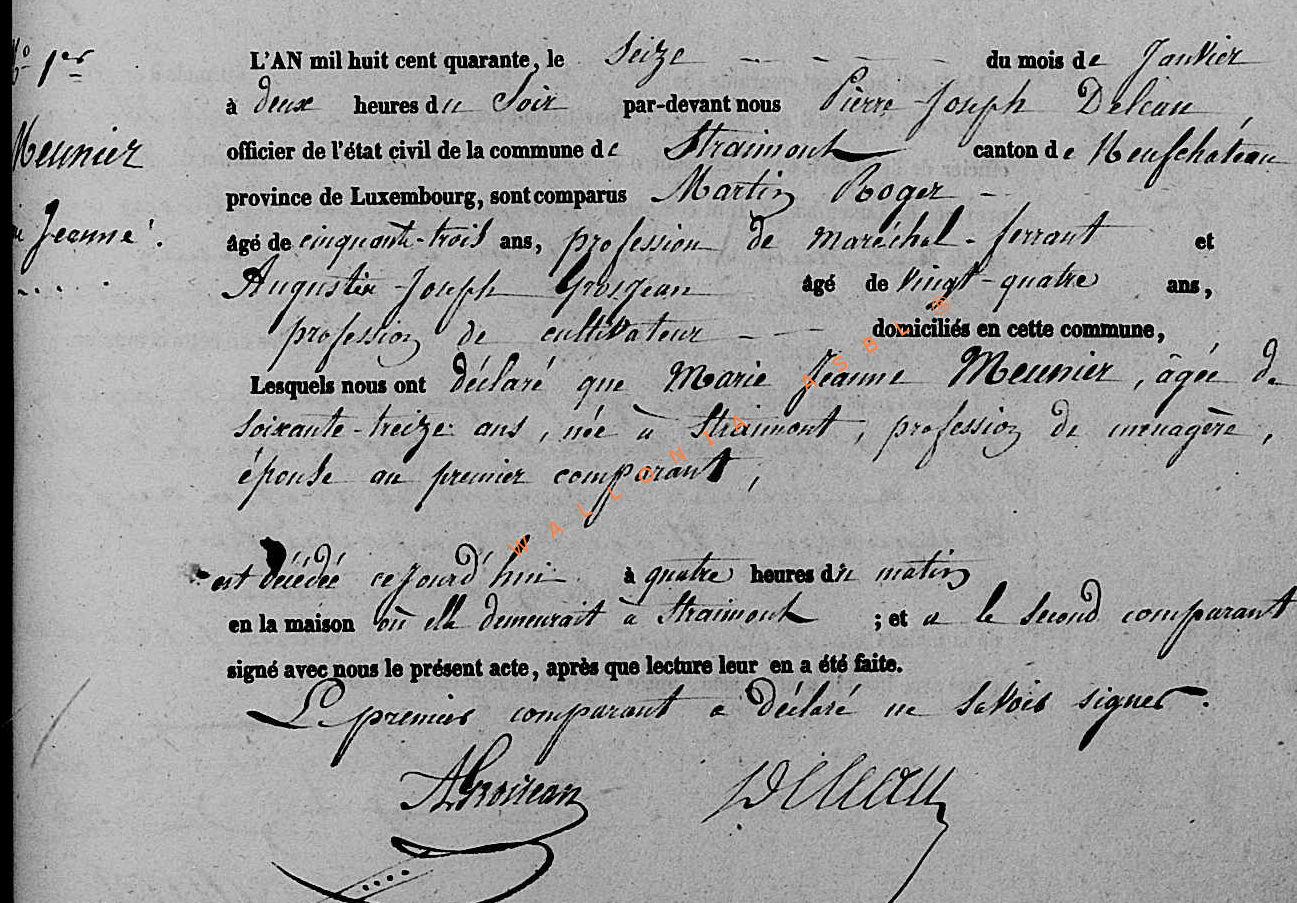 N.° 1er
Meunier
Jeanne.
L'AN mil huit cent quarante, le Seize du mois de Janvier
à deux heures du Soir par-devant nous Pierre Joseph Deleau,
officier de l'état civil de la commune de Straimont canton de Neufchâteau
province de Luxembourg, sont comparus Martin Roger
âgé de cinquante-trois ans, profession de maréchal-ferrant et
Augustin Joseph Grosjean âgé de vingt-quatre ans,
profession de cultivateur domiciliés en cette commune,
Lesquels nous ont déclaré que Marie Jeanne Meunier, âgée de
soixante-treize ans, née à Straimont, profession de ménagère,
épouse au premier comparant,
est décédée cejourd'hui à quatre heures du matin
en la maison où elle demeurait à Straimont ; et a le second comparant
signé avec nous le présent acte, après que lecture leur en a été faite.
Le premier comparant a déclaré ne savoir signer.
AGrosjean Deleau
WALLONIA ASBL ©